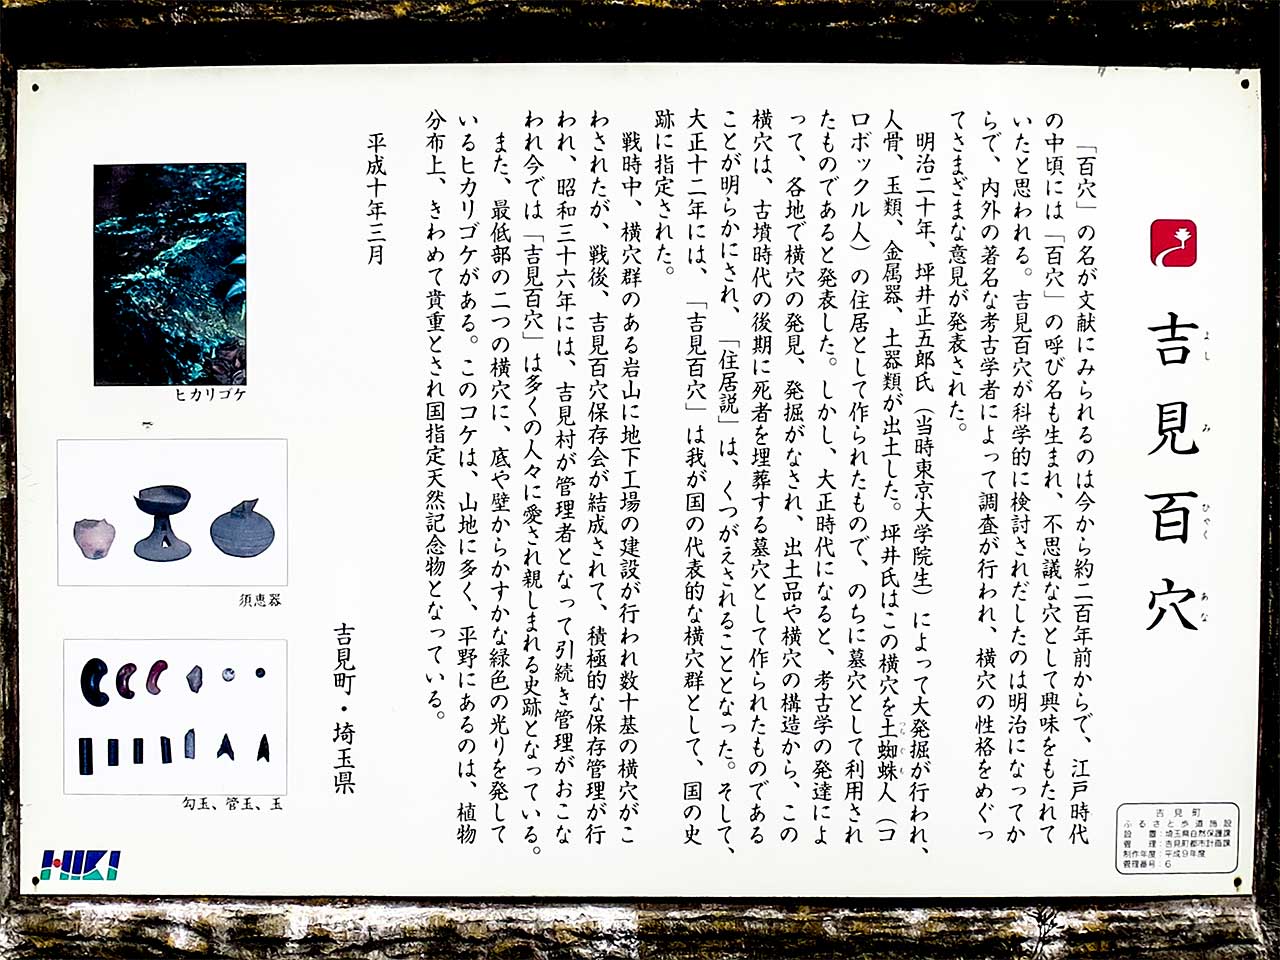 吉見百穴
よし み ひゃく あな
「百穴」の名が文献にみられるのは今から約二百年前からで、江戸時代
の中頃には「百穴」の呼び名も生まれ、不思議な穴として興味をもたれて
いたと思われる。吉見百穴が科学的に検討されだしたのは明治になってか
らで、内外の著名な考古学者によって調査が行われ、横穴の性格をめぐっ
てさまざまな意見が発表された。
明治二十年、坪井正五郎氏（当時東京大学院生）によって大発掘が行われ、
人骨、玉類、金属器、土器類が出土した。坪井氏はこの横穴を土蜘蛛人（コ
つちぐも
ロボックル人）の住居として作られたもので、のちに墓穴として利用され
たものであると発表した。しかし、大正時代になると、考古学の発達によ
って、各地で横穴の発見、発掘がなされ、出土品や横穴の構造から、この
横穴は、古墳時代の後期に死者を埋葬する墓穴として作られたものである
ことが明らかにされ、「住居説」は、くつがえされることとなった。そして、
大正十二年には、「吉見百穴」は我が国の代表的な横穴群として、国の史
跡に指定された。
戦時中、横穴群のある岩山に地下工場の建設が行われ数十基の横穴がこ
わされたが、戦後、吉見百穴保存会が結成されて、積極的な保存管理が行
われ、昭和三十六年には、吉見村が管理者となって引続き管理がおこな
われ今では「吉見百穴」は多くの人々に愛され親しまれる史跡となっている。
また、最低部の二つの横穴に、底や壁からかすかな緑色の光りを発して
いるヒカリゴケがある。このコケは、山地に多く、平野にあるのは、植物
分布上、きわめて貴重とされ国指定天然記念物となっている。
平成十年三月
吉見町・埼玉県
ヒカリゴケ
須恵器
勾玉、管玉、玉
HIKI
吉見町
ふるさと歩道施設
設　置：埼玉県自然保護課
管　理：吉見町都市計画課
制作年度：平成9年度
管理番号：6